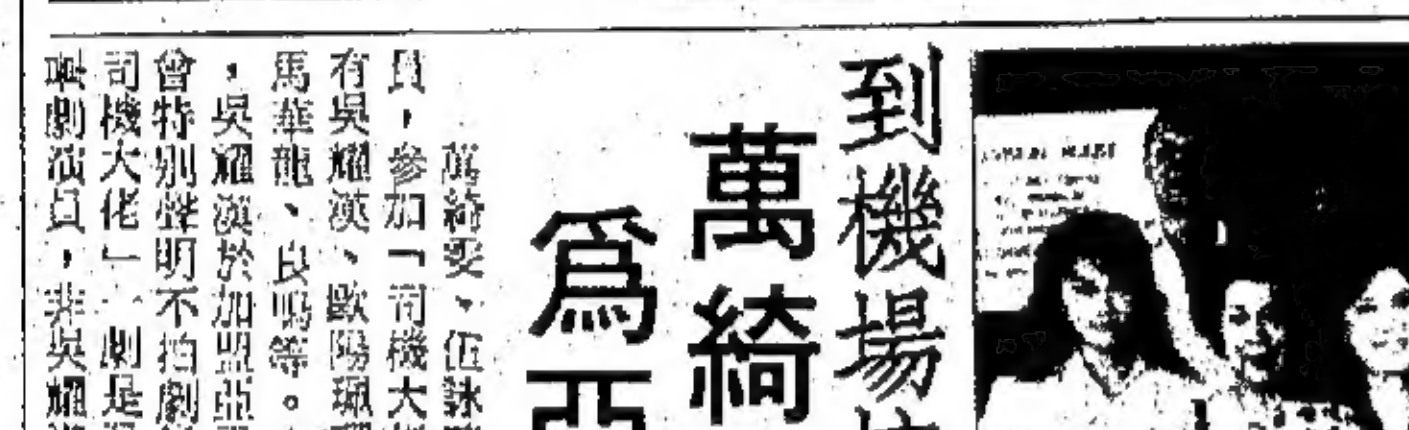 到機場
萬綺
為亞
萬綺雯、伍詠
員,參加「司機大
有吳耀漢、歐陽珮
馬華龍、良鳴等。
,吳耀漢於加盟亞
曾特別聲明不拍劇
司機大佬」一劇是
劇演員,非吳耀